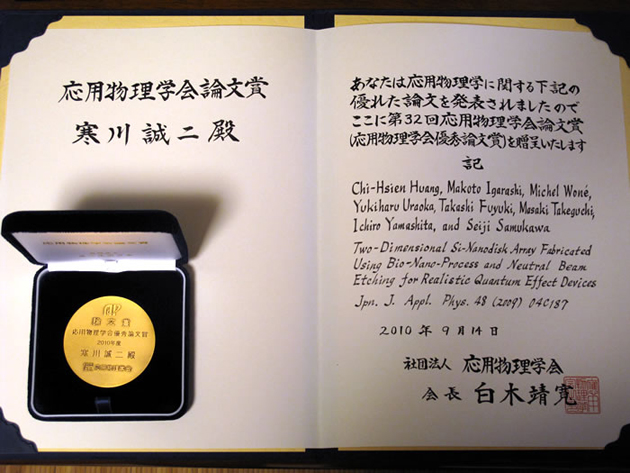 応用物理学会論文賞
寒川誠二殿
応用物理学会優秀論文賞
2010年度
寒川誠二殿
あなたは応用物理学に関する下記の
優れた論文を発表されましたので
ここに第32回応用物理学会論文賞
(応用物理学会優秀論文賞)を贈呈いたします
記
Chi-Hsien Huang, Makoto Igarashi, Michel Woné,
Yukiharu Uraoka, Takashi Fuyuki, Masaki Takeguchi,
Ichiro Yamashita, and Seiji Samukawa
Two-Dimensional Si-Nanodisk Array Fabricated
Using Bio-Nano-Process and Neutral Beam
Etching for Realistic Quantum Effect Devices
Jpn. J. Appl. Phys. 48 (2009) 04C187
2010年9月14日
社団法人 応用物理学会
会長 白木靖寛